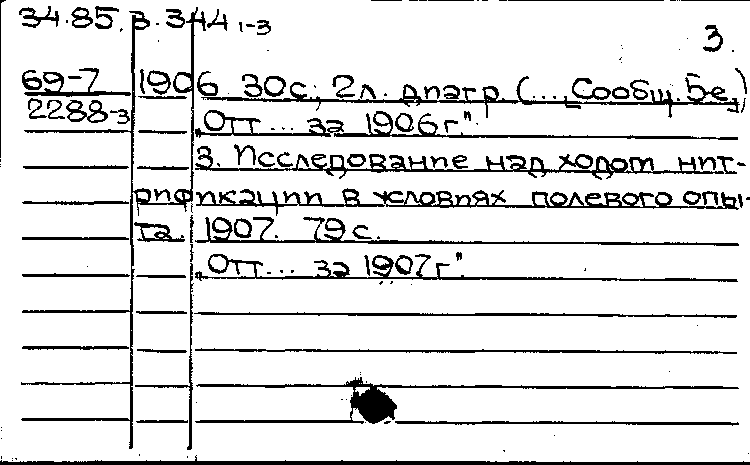 34.85.З.344 1-3
3.
69-7 1906 30с., 2л. диагр. (..., Сообщ. Бе,)
2288-3 „Отт... за 1906г."
3. Исследование над ходом нит-
рификации в условиях полевого опы-
та. 1907. 79с.
„Отт... за 1907г".